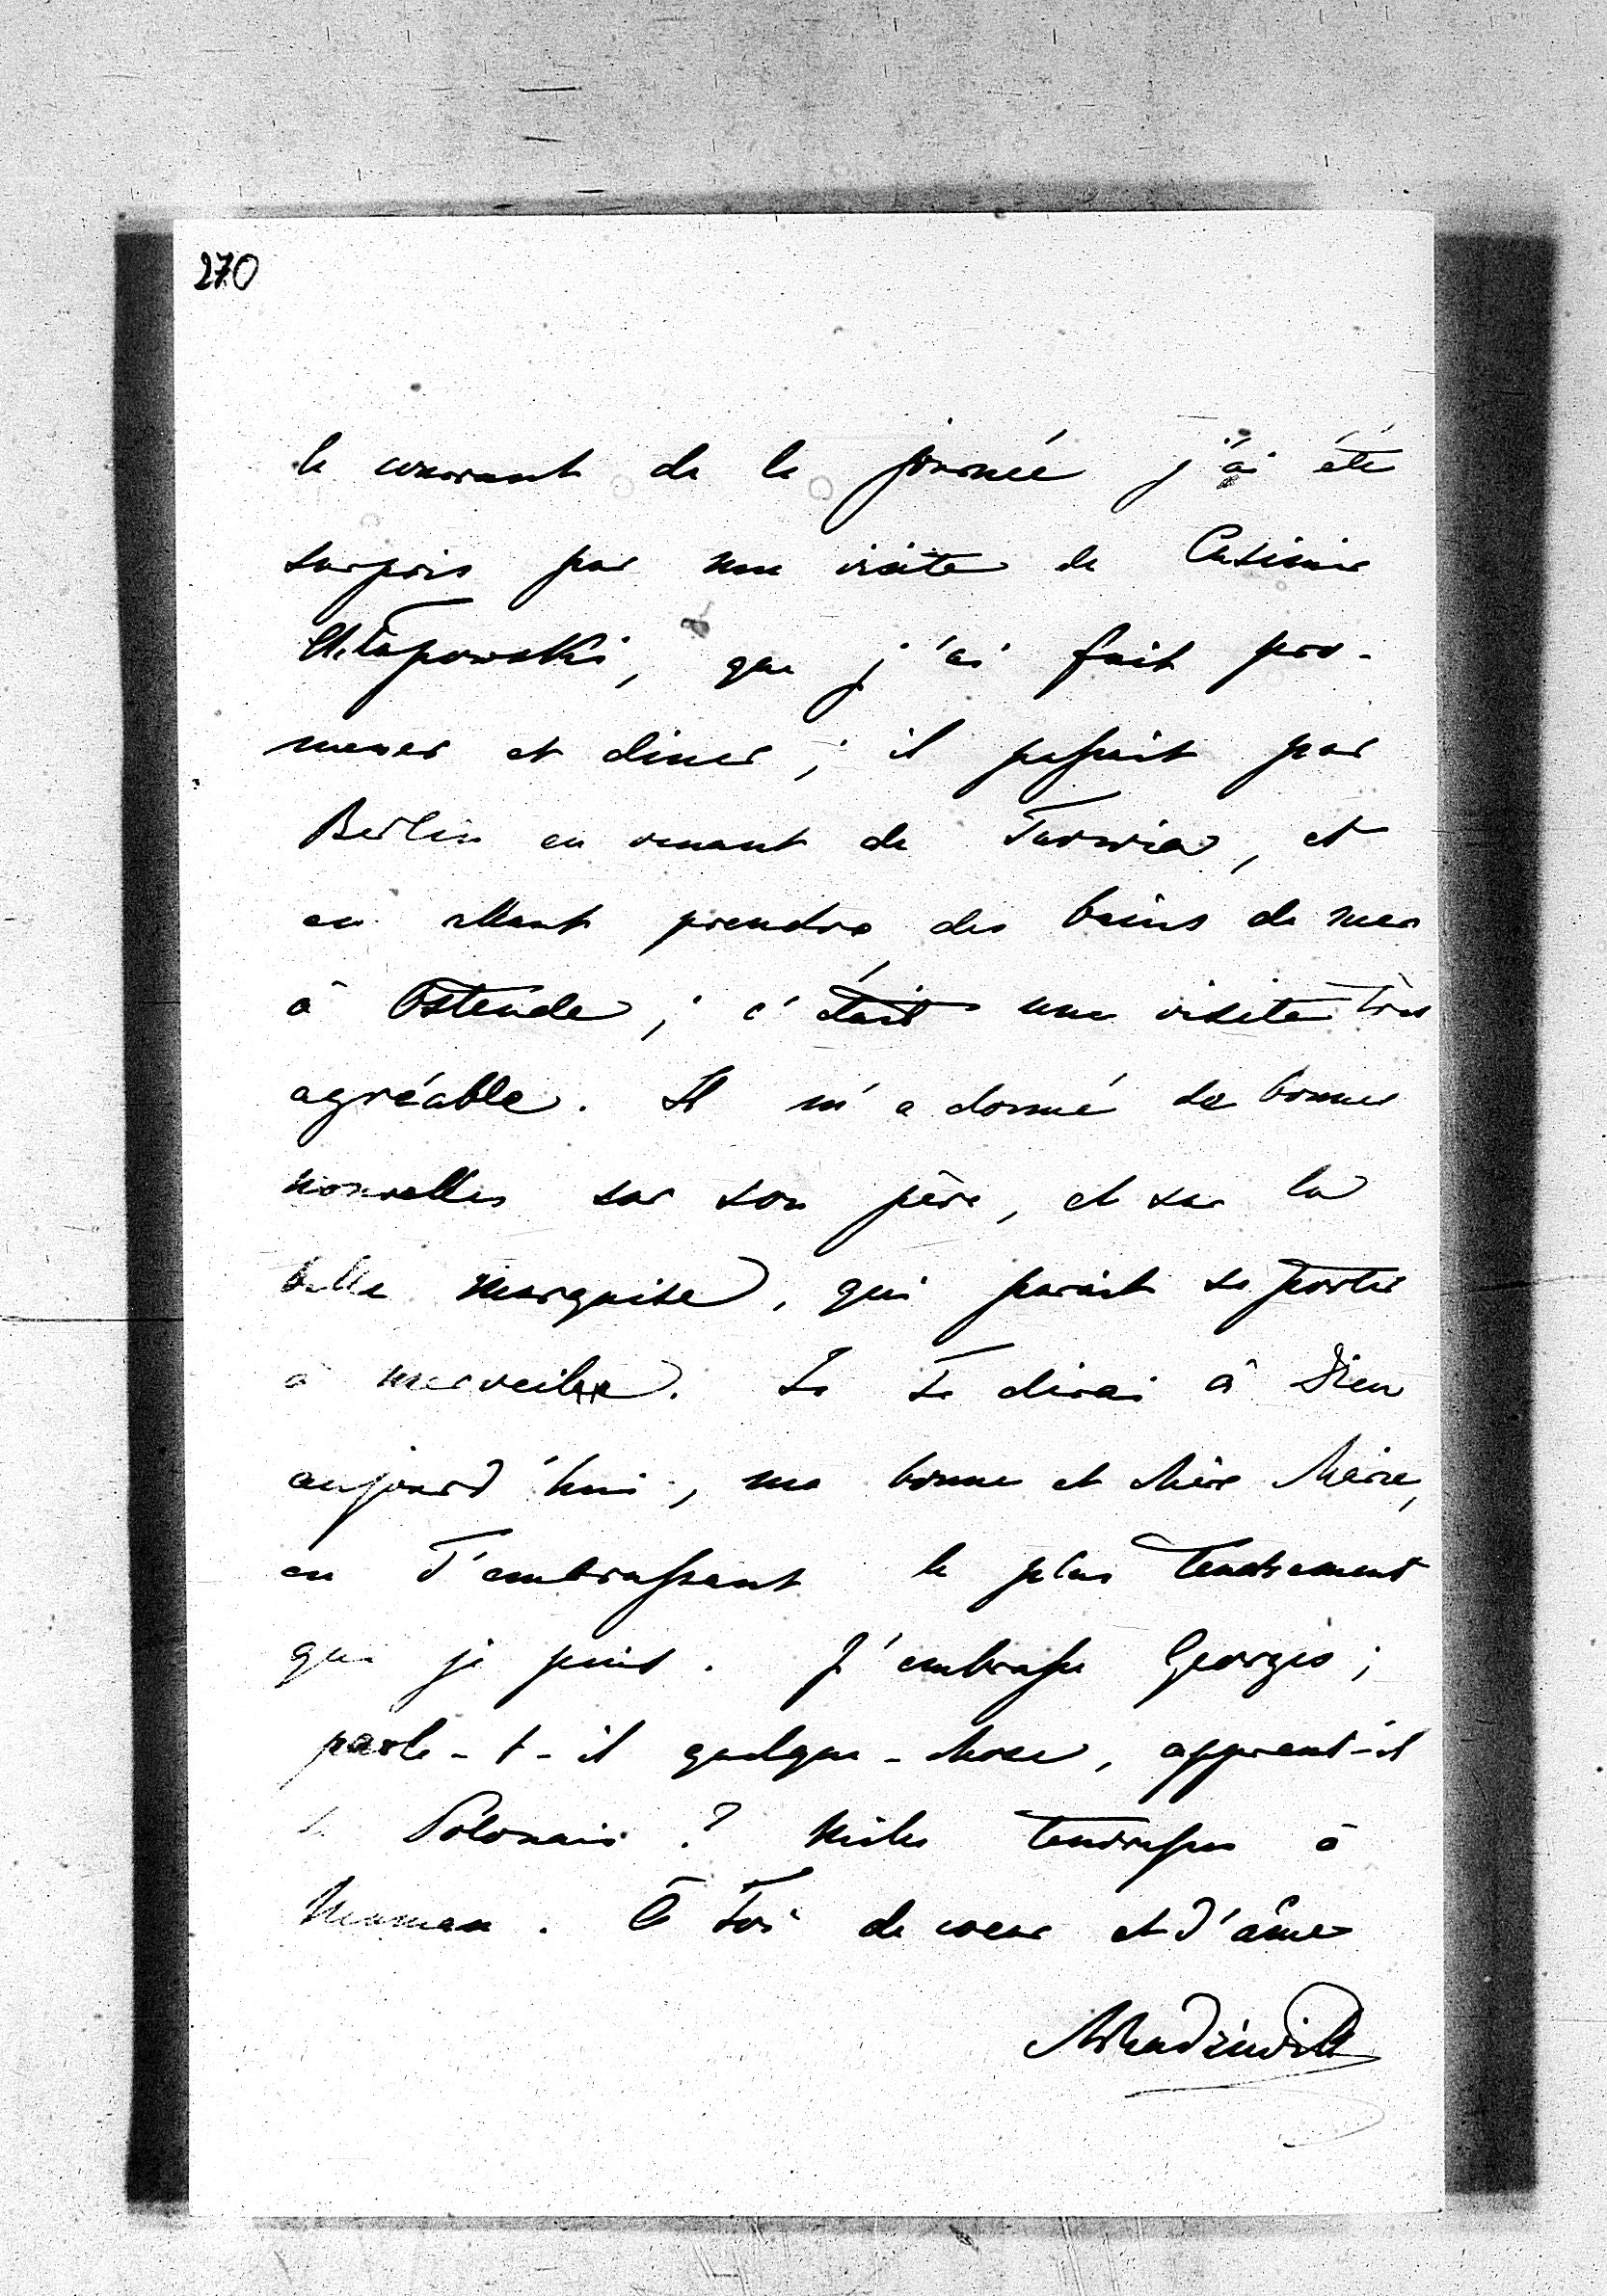 270
le courant de la journée j'ai été
surpris par une visite de Casimir
Chłapowski, que j'ai fait pro-
mener et diner ; il passait par
Berlin en venant de Turwia, et
en allant prendre des bains de mer
à Ostende ; c'était une visite très
agréable. Il m'a donné de bonnes
nouvelles sur son père, et sur la
belle marquise, qui parait se porter
à merveille. Je Te dirai à Dieu
aujourd'hui, ma bonne et chère Mère,
en T'embrassant le plus tendrement
que je puis. J'embrasse Georges ;
parle-t-il quelque-chose, apprent-il
le Polonais ? Milles tendresses à
Maman. à Toi de coeur et d'âme
ARadziwiłł